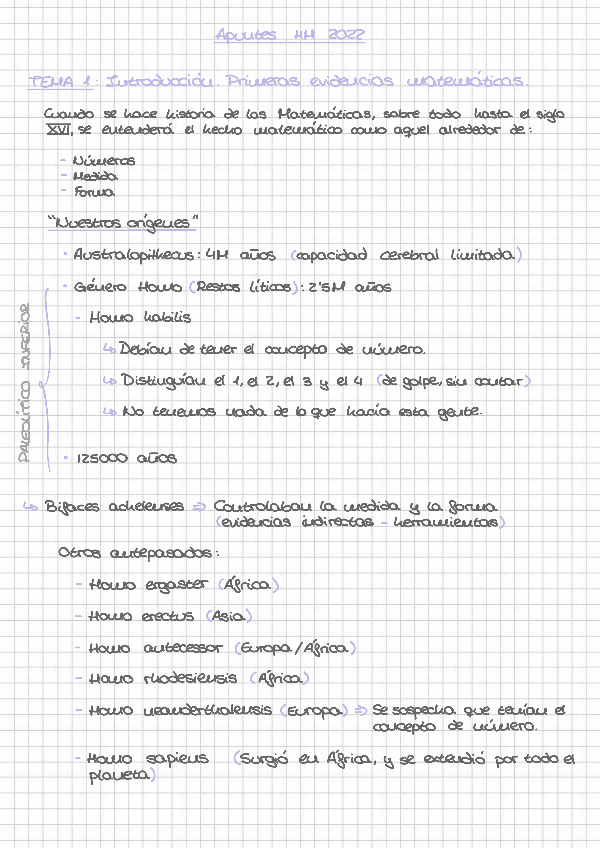 Apuntes HM 2022
TEMA 1: Introducción. Primeras evidencias matemáticas.
Cuando se hace historia de las Matemáticas, sobre todo hasta el siglo
XVI, se entenderá el hecho matemático como aquel alrededor de:
- Números
- Medida
- Forma
"Nuestros orígenes"
· Australopithecus: 4M años (capacidad cerebral limitada)
· Género Homo (Restos líticos): 2'5M años
- Homo habilis
↳ Debían de tener el concepto de número.
↳ Distinguían el 1, el 2, el 3 y el 4 (de golpe, sin contar)
↳ No tenemos nada de lo que hacía esta gente.
· 125000 años
PALEOLÍTICO INFERIOR
↳ Bifaces achelenses ⇒ Controlaban la medida y la forma
(evidencias indirectas - herramientas)
Otros antepasados:
- Homo ergaster (África)
- Homo erectus (Asia)
- Homo antecessor (Europa/África)
- Homo rhodesiensis (África)
- Homo neanderthalensis (Europa) ⇒ Se sospecha que tenían el
concepto de número.
- Homo sapiens (Surgió en África, y se extendió por todo el
planeta)